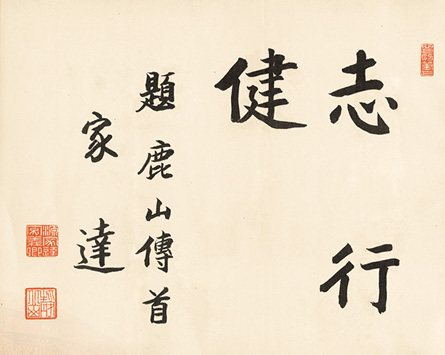 志行
健
題鹿山傳首
家達